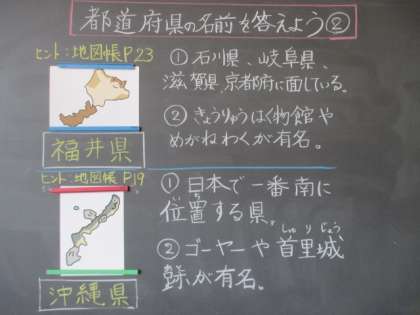 都道府県の名前を答えよう②
ヒント:地図帳P23
①石川県、岐阜県、
滋賀県、京都府に面している。
②きょうりゅうはく物館や
めがねわくが有名。
福井県
ヒント:地図帳P19
①日本で一番南に
いち
位置する県。
しゅりじょう
②ゴーヤーや首里城
が有名。
沖縄県